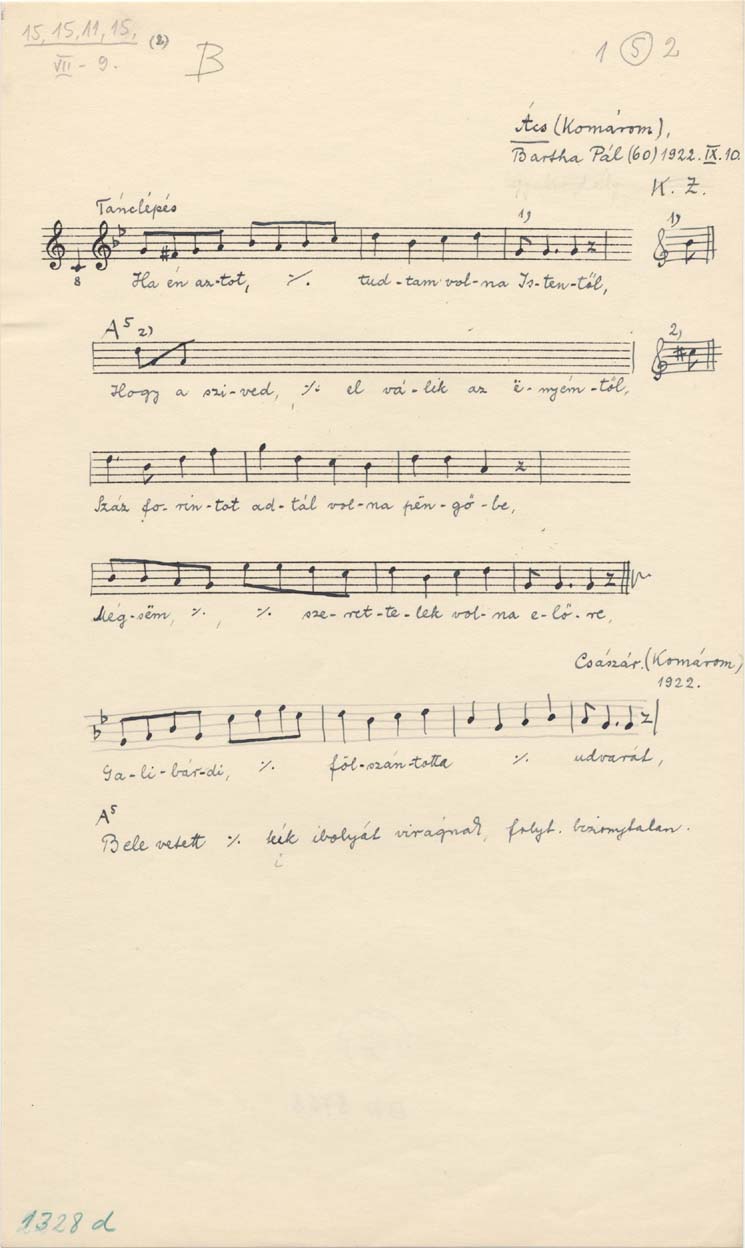 15, 15, 11, 15, (2)
VII - 9.
B
1 (5) 2
Ács (Komárom),
Bartha Pál (60) 1922. IX. 10.
K. Z.
Tánclépés
1) 1)
8
Ha én az-tot, ·/. tud-tam vol-na Is-ten-től,
A5 2) 2)
Hogy a szi-ved, ·/. el vá-lik az ë-nyém-től,
Száz fo-rin-tot ad-tál vol-na pën-gő-be,
Még-sëm, ·/., ·/. sze-ret-te-lek vol-na e-lő-re,
Császár. (Komárom)
1922.
Ga-li-bár-di, ·/. föl-szán-totta ·/. udvarát,
A5
Bele vetett ·/. kék ibolyát virágnak, folyt. bizonytalan.
i
1328 d